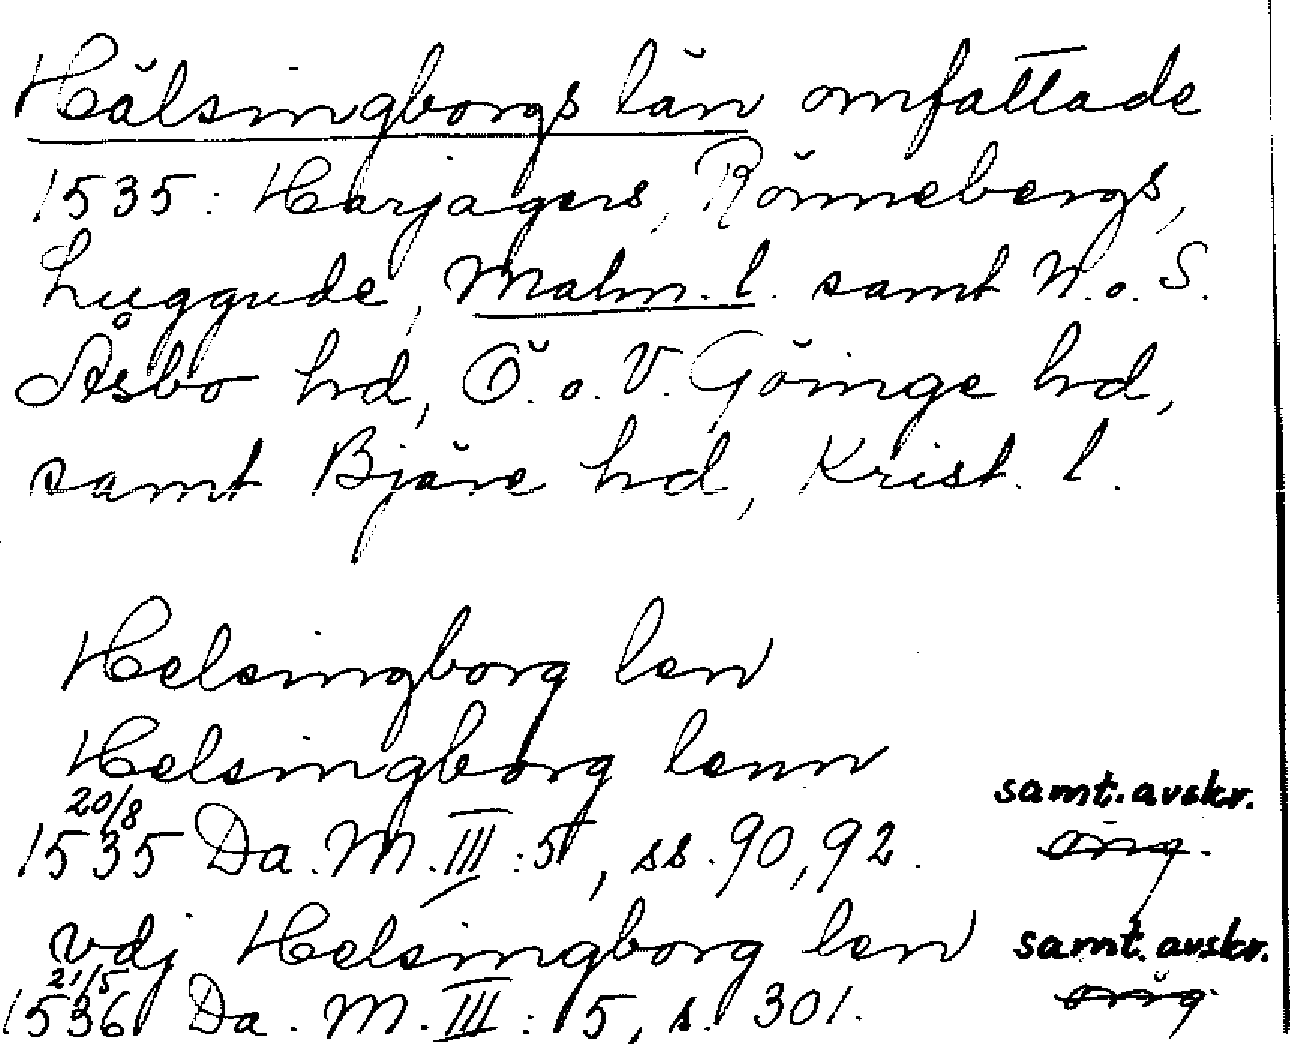 Hälsingborgs län omfattade
1535: Harjagers, Rönnebergs,
Luggude, Malm. l. samt N. o. S.
Åsbo hd, Ö. o. V. Göinge hd,
samt Bjäre hd, Krist. l.
Helsingborg len
Helsingborg lenn
20/8 samt. avskr.
1535 Da. M. III:5, ss. 90, 92. orig.
vdj Helsingborg len samt. avskr.
21/5
1536 Da. M. III:5, s. 301. orig.